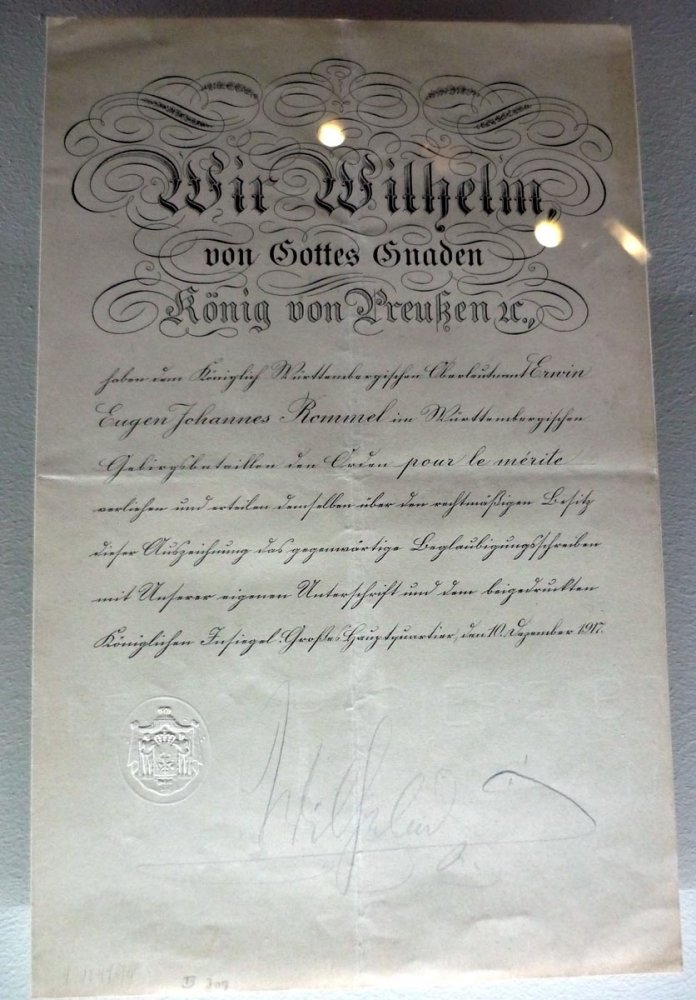 Wir Wilhelm,
von Gottes Gnaden
König von Preußen ꝛc.,
haben dem Königlich Württembergischen Oberleutnant Erwin
Eugen Johannes Rommel im Württembergischen
Gebirgsbataillon den Orden pour le mérite
verliehen und erteilen demselben über den rechtmäßigen Besitz
dieser Auszeichnung das gegenwärtige Beglaubigungsschreiben
mit Unserer eigenen Unterschrift und dem beigedruckten
Königlichen Insiegel. Großes Hauptquartier, den 10. Dezember 1917.
Wilhelm